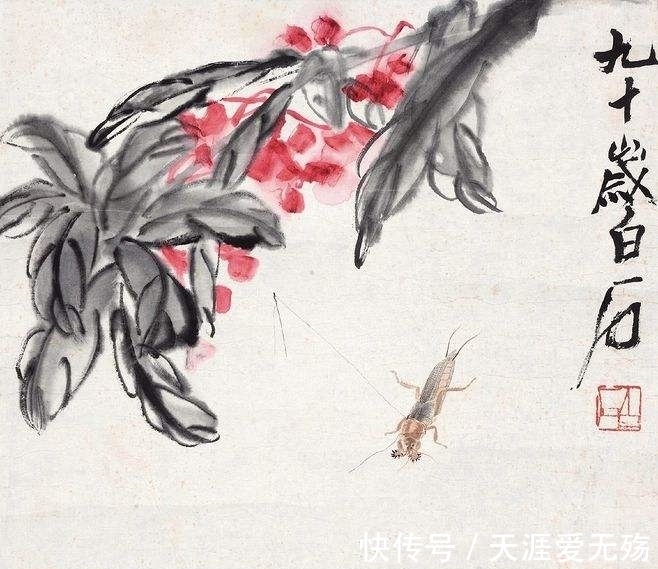 九十歲白石
快传号/天涯爱无殇